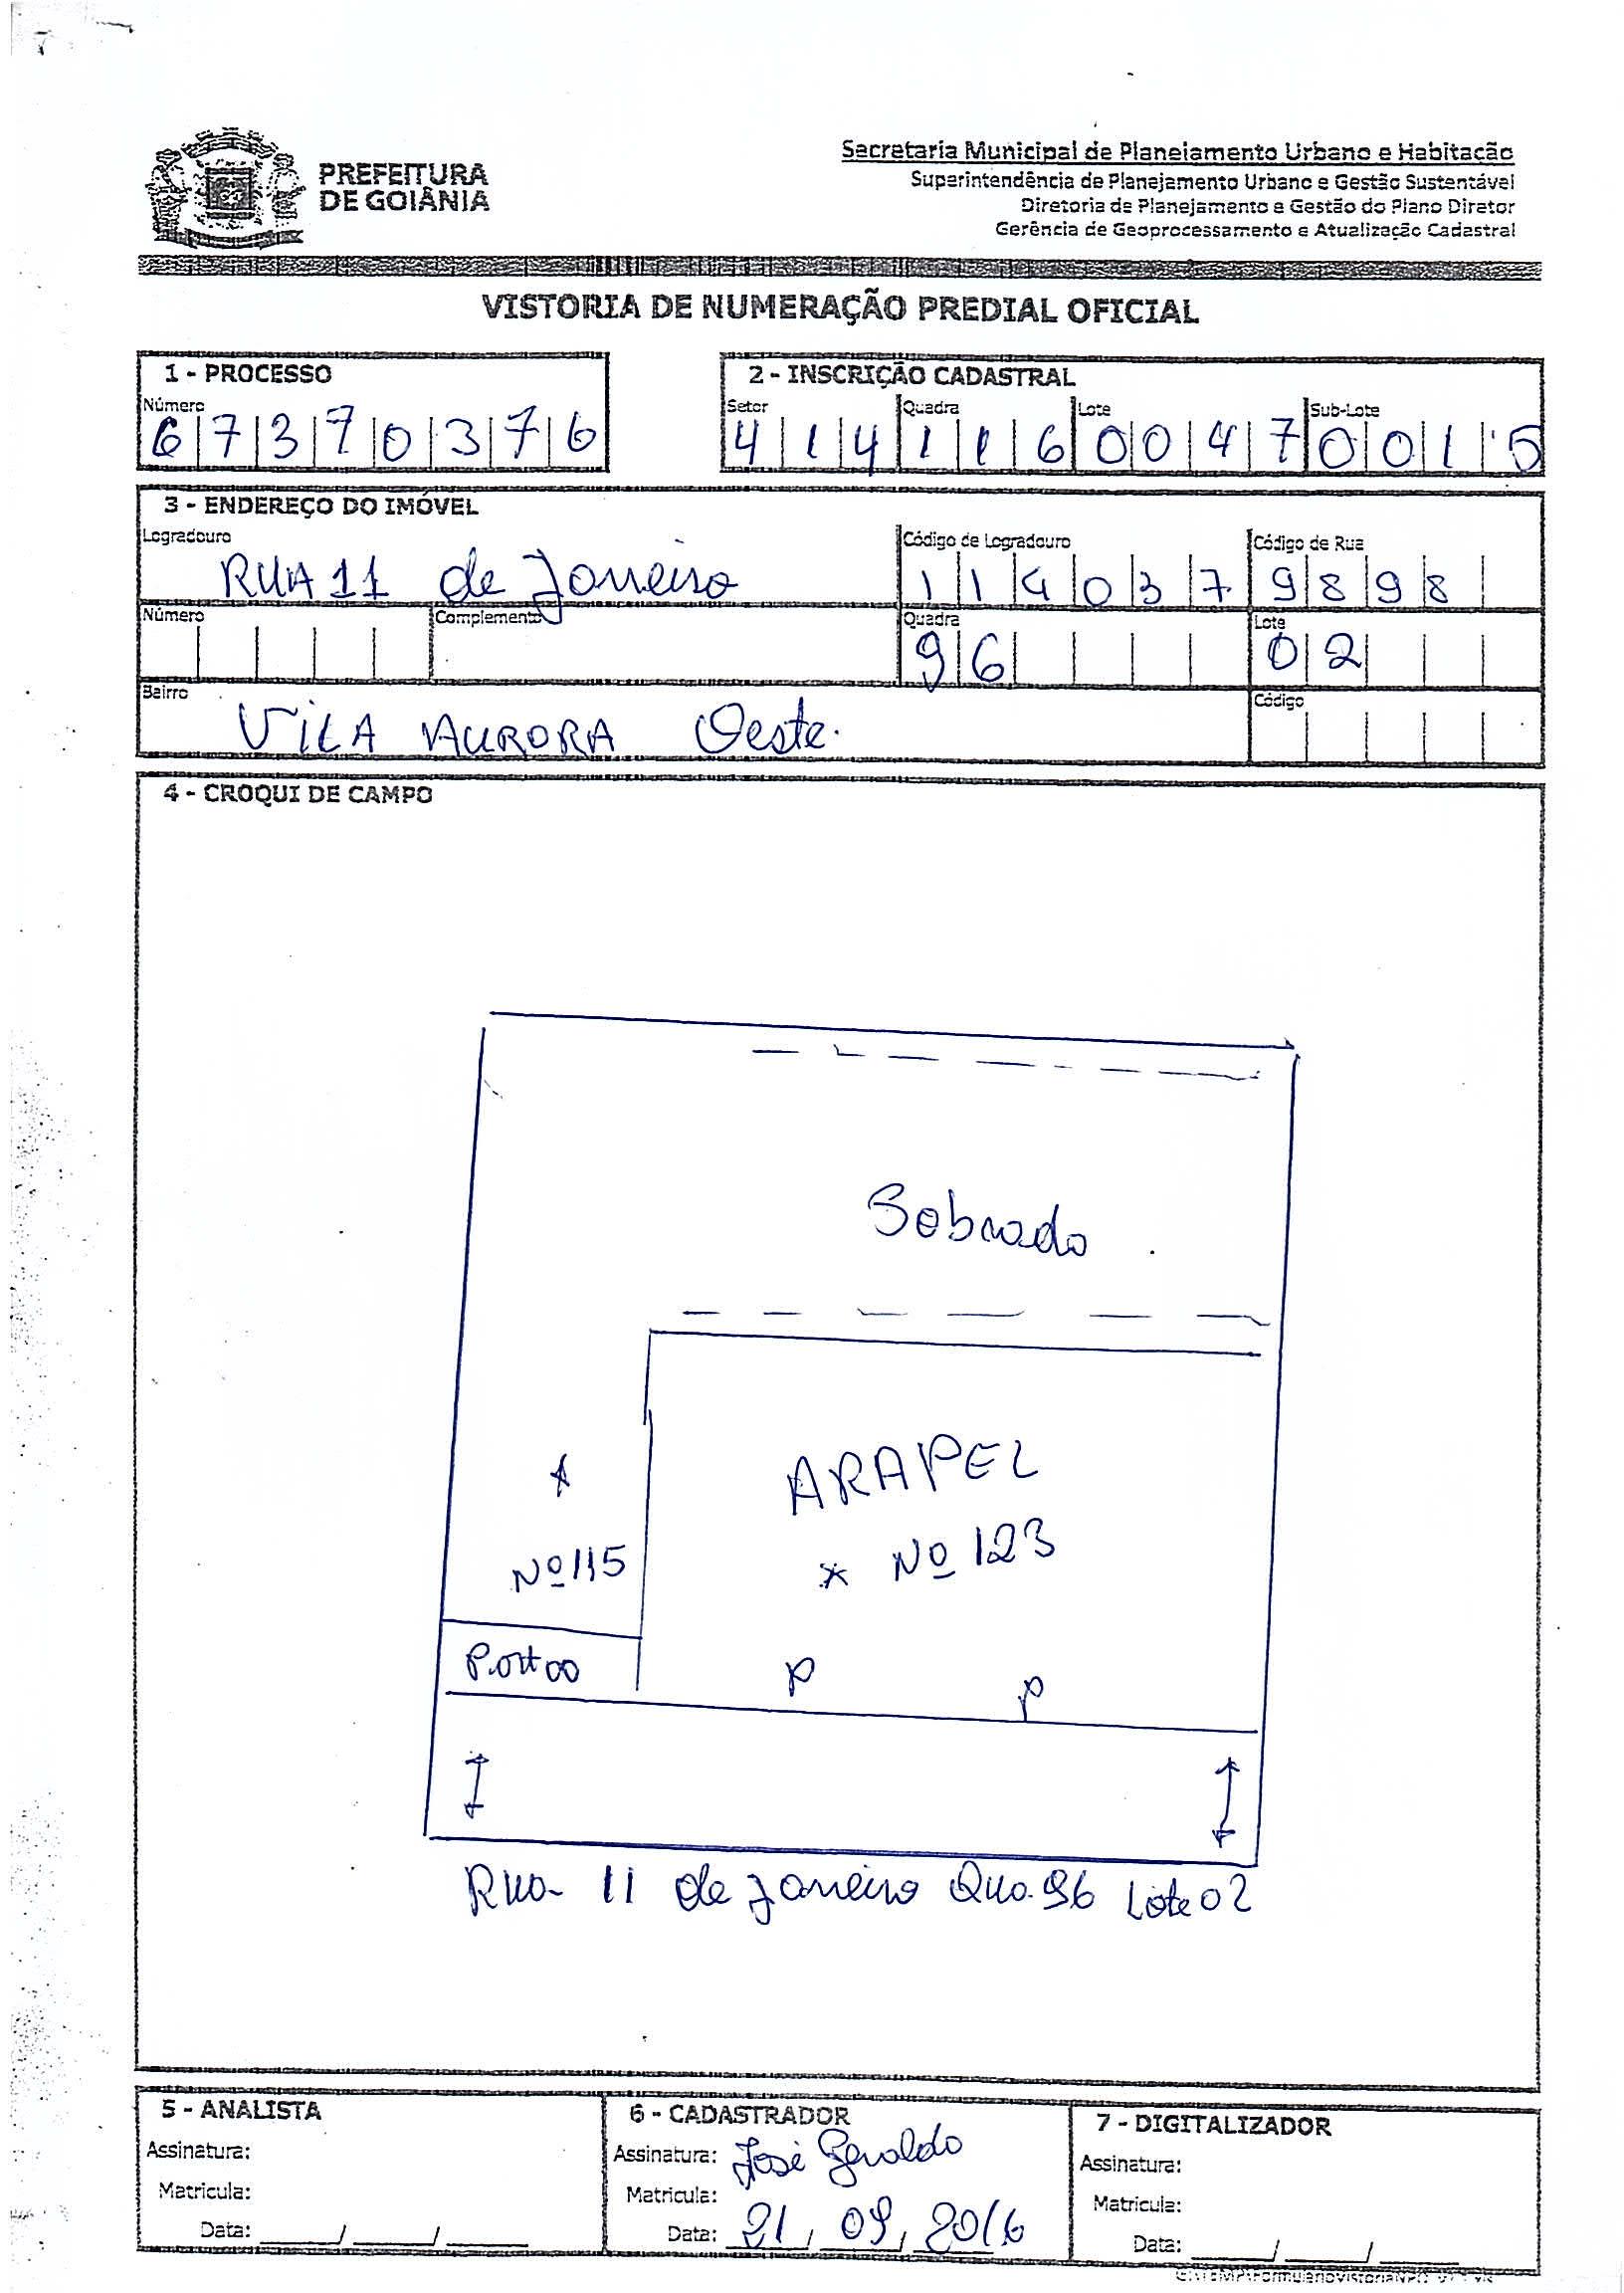 PREFEITURA
DE GOIÂNIA
Secretaria Municipal de Planejamento Urbano e Habitação
Superintendência de Planejamento Urbano e Gestão Sustentável
Diretoria de Planejamento e Gestão do Plano Diretor
Gerência de Geoprocessamento e Atualização Cadastral
VISTORIA DE NUMERAÇÃO PREDIAL OFICIAL
1 - PROCESSO
Número
67370376
2 - INSCRIÇÃO CADASTRAL
Setor Quadra Lote Sub-Lote
414 116 0047 0015
3 - ENDEREÇO DO IMÓVEL
Logradouro Código de Logradouro Código de Rua
RUA 11 de Janeiro 114037 9898
Número Complemento Quadra Lote
96 02
Bairro Código
VILA AURORA Oeste.
4 - CROQUI DE CAMPO
Sobrado
ARAPEL
Nº 115
Nº 123
Portão
P P
Rua 11 de Janeiro Qua. 96 Lote 02
5 - ANALISTA
Assinatura:
Matrícula:
Data: / /
6 - CADASTRADOR
Assinatura: José Geraldo
Matrícula:
Data: 21/09/2016
7 - DIGITALIZADOR
Assinatura:
Matrícula:
Data: / /